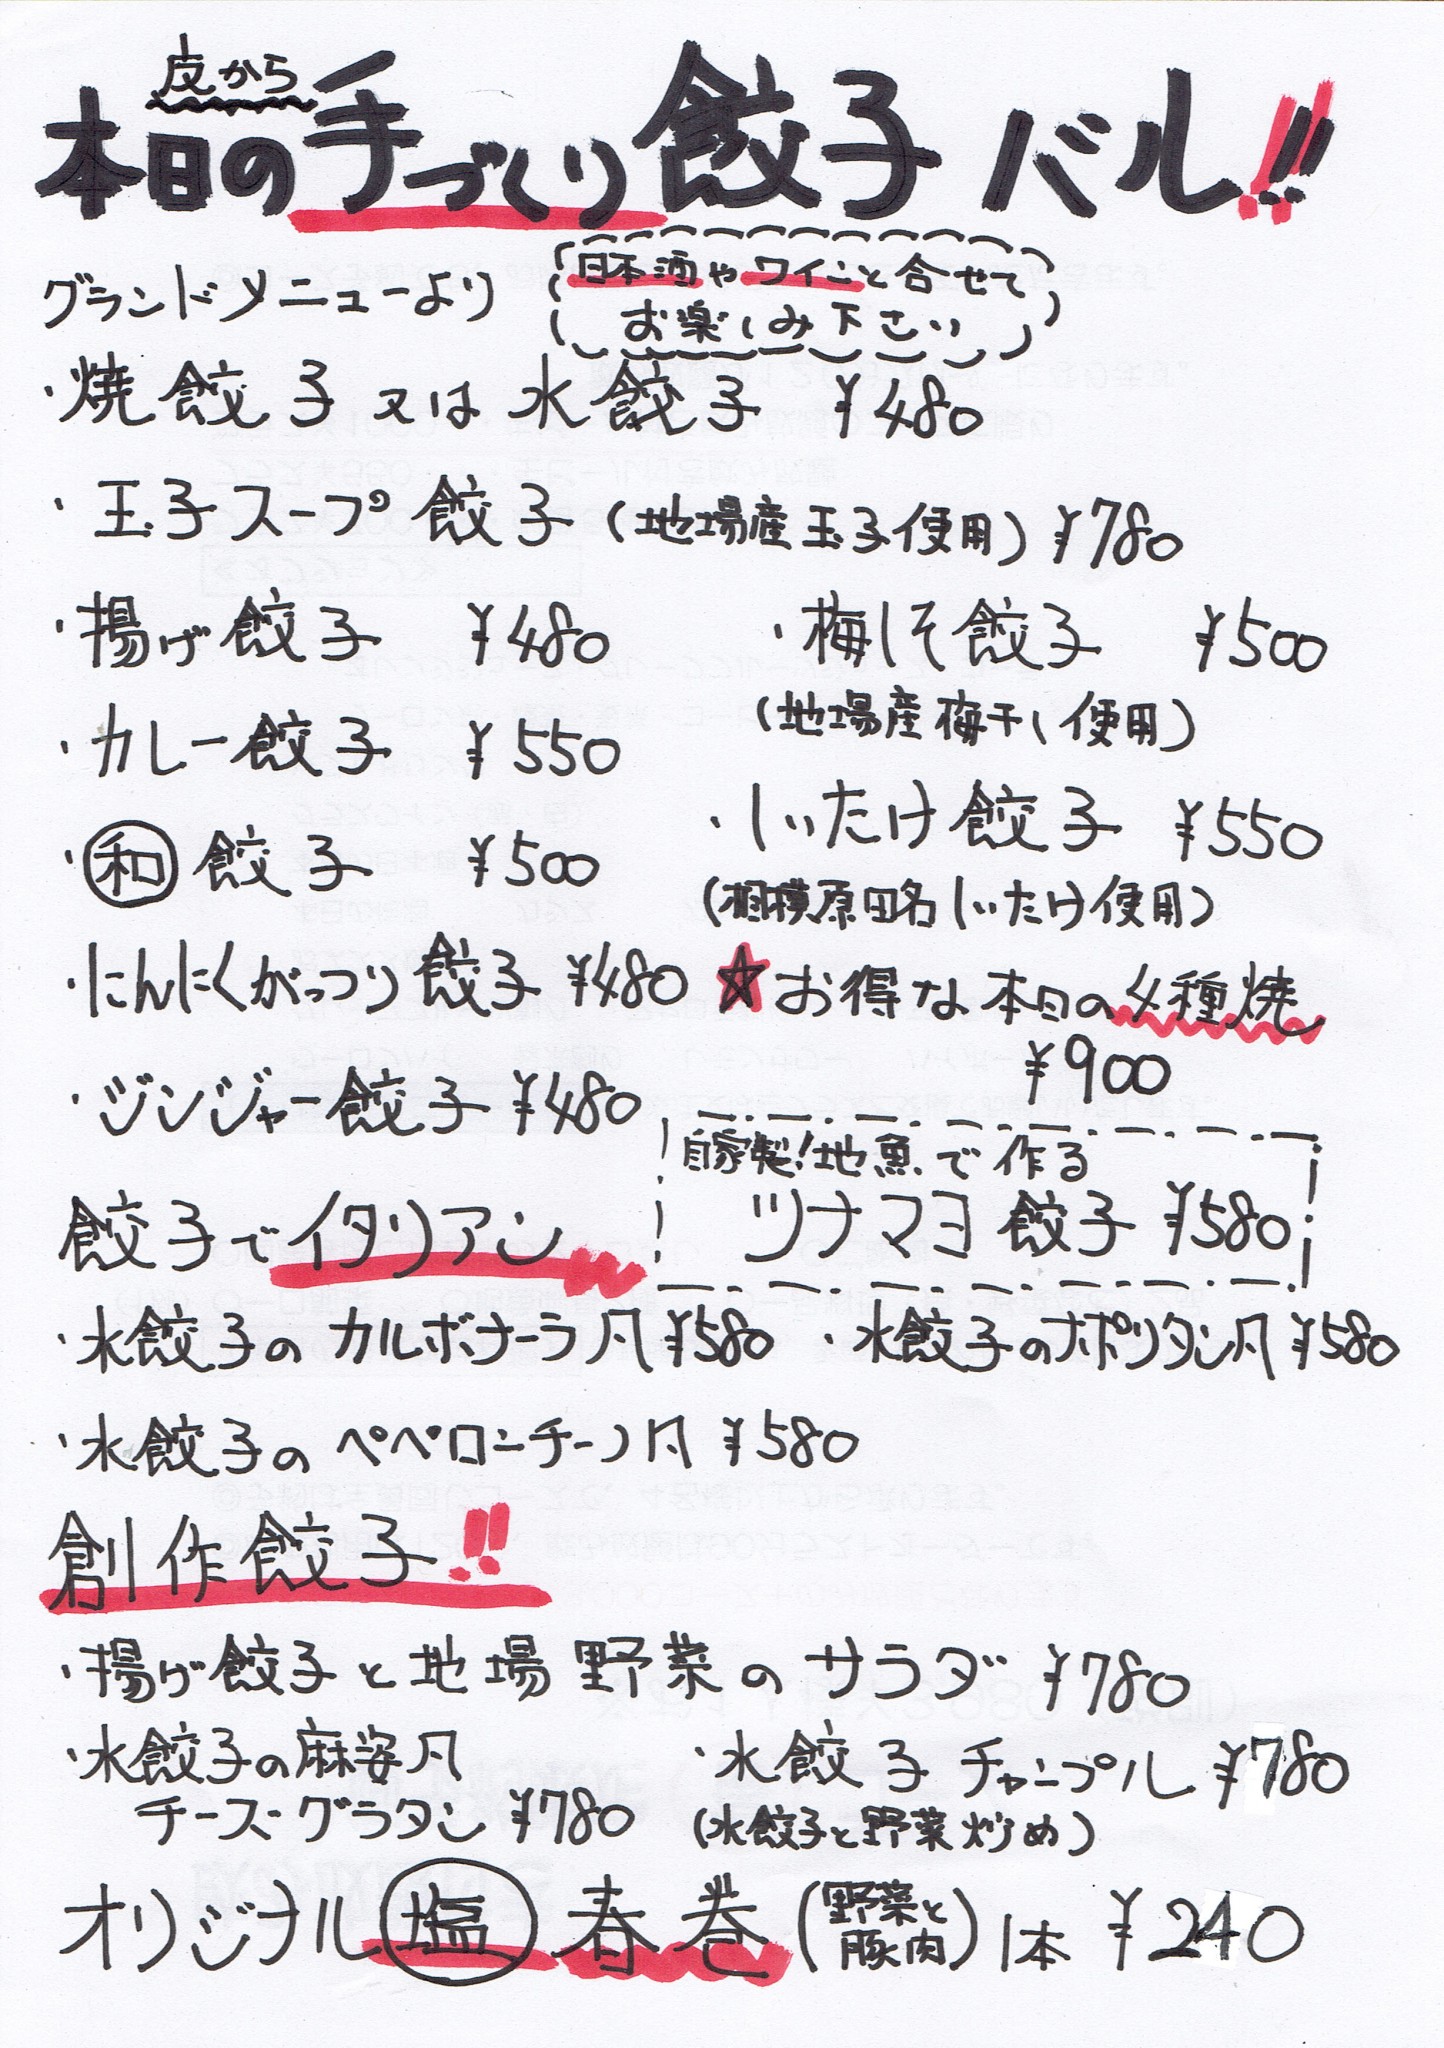 皮から
本日の手づくり餃子バル!!
グランドメニューより
日本酒やワインと合せて
お楽しみ下さい
・焼餃子又は水餃子 ¥480
・玉子スープ餃子(地場産玉子使用)¥780
・揚げ餃子 ¥480
・梅しそ餃子 ¥500
(地場産梅干し使用)
・カレー餃子 ¥550
・しいたけ餃子 ¥550
(相模原田名しいたけ使用)
・和餃子 ¥500
・にんにくがっつり餃子 ¥480
★お得な本日の4種焼
¥900
・ジンジャー餃子 ¥480
自家製!地魚で作る
ツナマヨ餃子 ¥580
餃子でイタリアン
・水餃子のカルボナーラ風 ¥580
・水餃子のナポリタン風 ¥580
・水餃子のペペロンチーノ風 ¥580
創作餃子!!
・揚げ餃子と地場野菜のサラダ ¥780
・水餃子の麻婆風
チーズグラタン ¥780
・水餃子チャンプル ¥780
(水餃子と野菜炒め)
オリジナル塩春巻(野菜と豚肉)1本 ¥240